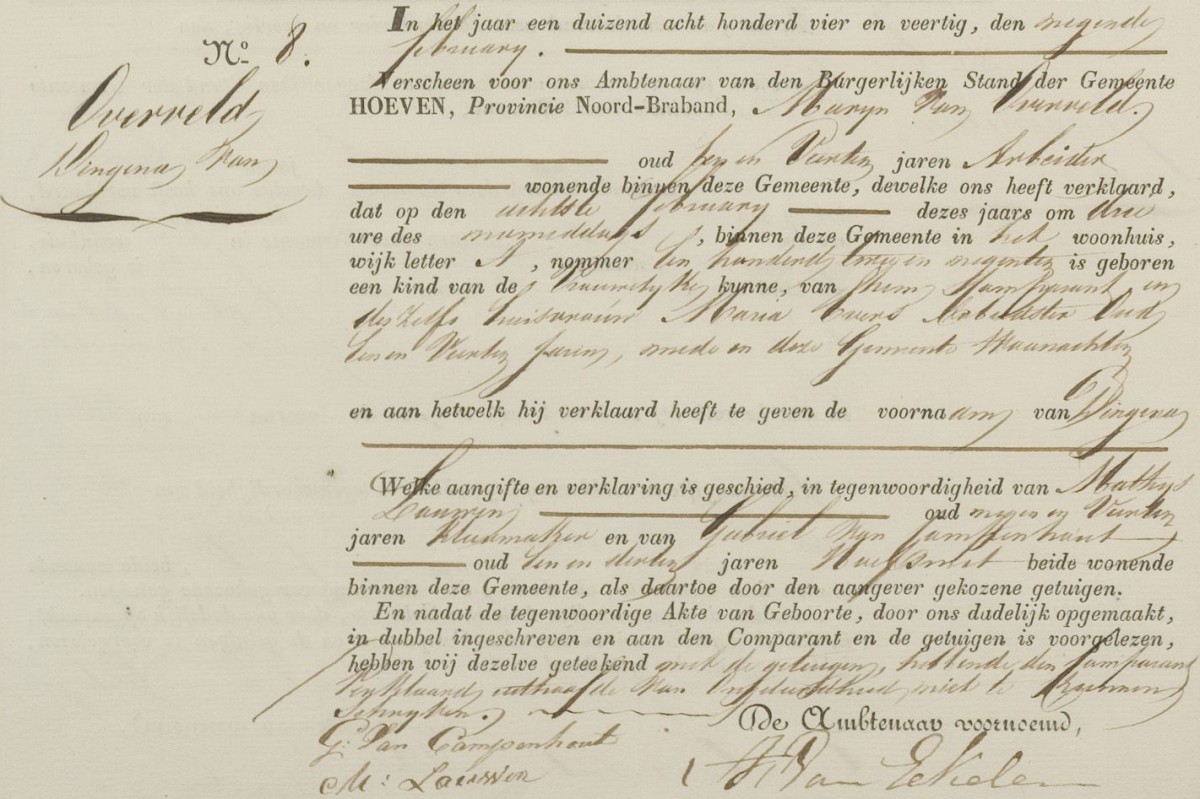 In het jaar een duizend acht honderd vier en veertig, den negende
No. 8.
february.
Overveld
Dingena Van
Verscheen voor ons Ambtenaar van den Burgerlijken Stand der Gemeente
HOEVEN, Provincie Noord-Braband, Maryn Van Overveld.
oud zes en Veertig jaren Arbeider
wonende binnen deze Gemeente, dewelke ons heeft verklaard,
dat op den achtste february dezes jaars om drie
ure des namiddags, binnen deze Gemeente in het woonhuis,
wijk letter A, nommer een honderd twee en negentig is geboren
een kind van de Vrouwelyke kunne, van hem Comparant en
deszelfs huisvrouw Maria Evers Arbeidster Oud
een en Veertig jaren, mede in deze Gemeente Woonachtig
en aan hetwelk hij verklaard heeft te geven de voornaam van Dingena
Welke aangifte en verklaring is geschied, in tegenwoordigheid van Mathys
Lauwen oud negen en Veertig
jaren Kleermaker en van Gabriel Van Campenhout
oud een en dertig jaren Hoefsmit beide wonende
binnen deze Gemeente, als daartoe door den aangever gekozene getuigen.
En nadat de tegenwoordige Akte van Geboorte, door ons dadelijk opgemaakt,
in dubbel ingeschreven en aan den Comparant en de getuigen is voorgelezen,
hebben wij dezelve geteekend met de getuigen, hebbende den Comparant
Verklaard uithoofde van Ongeleerdheid niet te Kunnen
Schryven.
De Ambtenaar voornoemd,
G: Van Campenhout
M: Lauwen
Van Ekelen